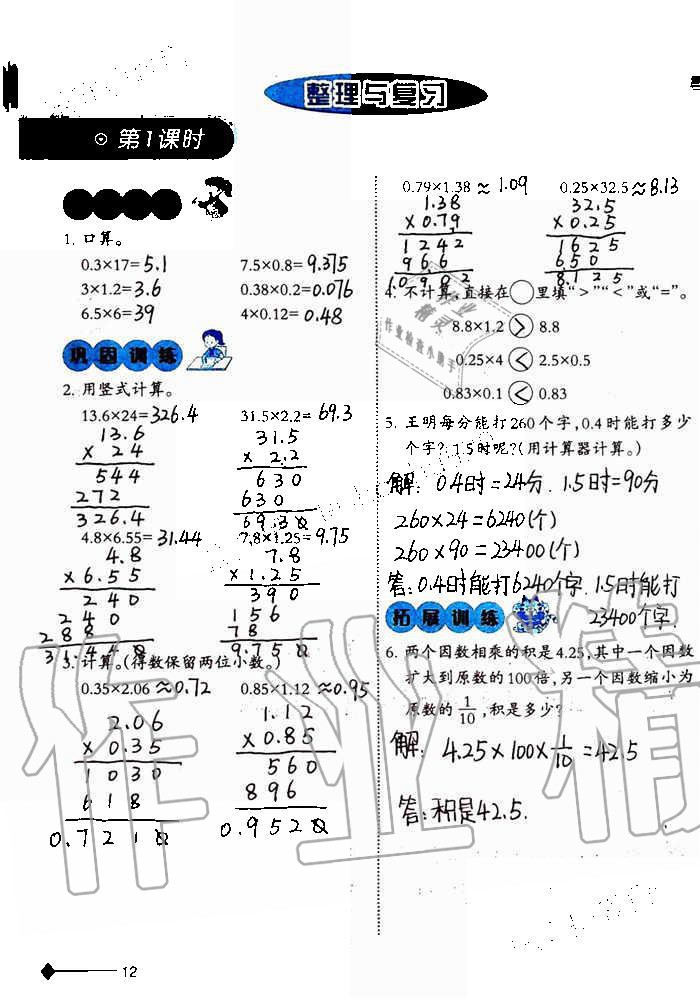 整理与复习
第1课时
1. 口算。
0.3×17=5.1 7.5×0.8=9.375
3×1.2=3.6 0.38×0.2=0.076
6.5×6=39 4×0.12=0.48
巩固训练
2. 用竖式计算。
13.6×24=326.4 31.5×2.2=69.3
13.6 31.5
×24 ×2.2
544 630
272 630
326.4 69.30
4.8×6.55=31.44 7.8×1.25=9.75
4.8 7.8
×6.55 ×1.25
240 390
240 156
288 78
31.440 9.750
3. 计算。(得数保留两位小数。)
0.35×2.06≈0.72 0.85×1.12≈0.95
2.06 1.12
×0.35 ×0.85
1030 560
618 896
0.7210 0.9520
0.79×1.38≈1.09 0.25×32.5≈8.13
1.38 32.5
×0.79 ×0.25
1242 1625
966 650
1.0902 8.125
4. 不计算,直接在○里填“>”“<”或“=”。
8.8×1.2>8.8
0.25×4<2.5×0.5
0.83×0.1<0.83
5. 王明每分能打260个字,0.4时能打多少
个字?1.5时呢?(用计算器计算。)
解:0.4时=24分.1.5时=90分
260×24=6240(个)
260×90=23400(个)
答:0.4时能打6240个字.1.5时能打
23400个字.
拓展训练
6. 两个因数相乘的积是4.25,其中一个因数
扩大到原数的100倍,另一个因数缩小为
原数的1/10,积是多少?
解:4.25×100×1/10=42.5
答:积是42.5.
作业精灵
作业检查小助手
12